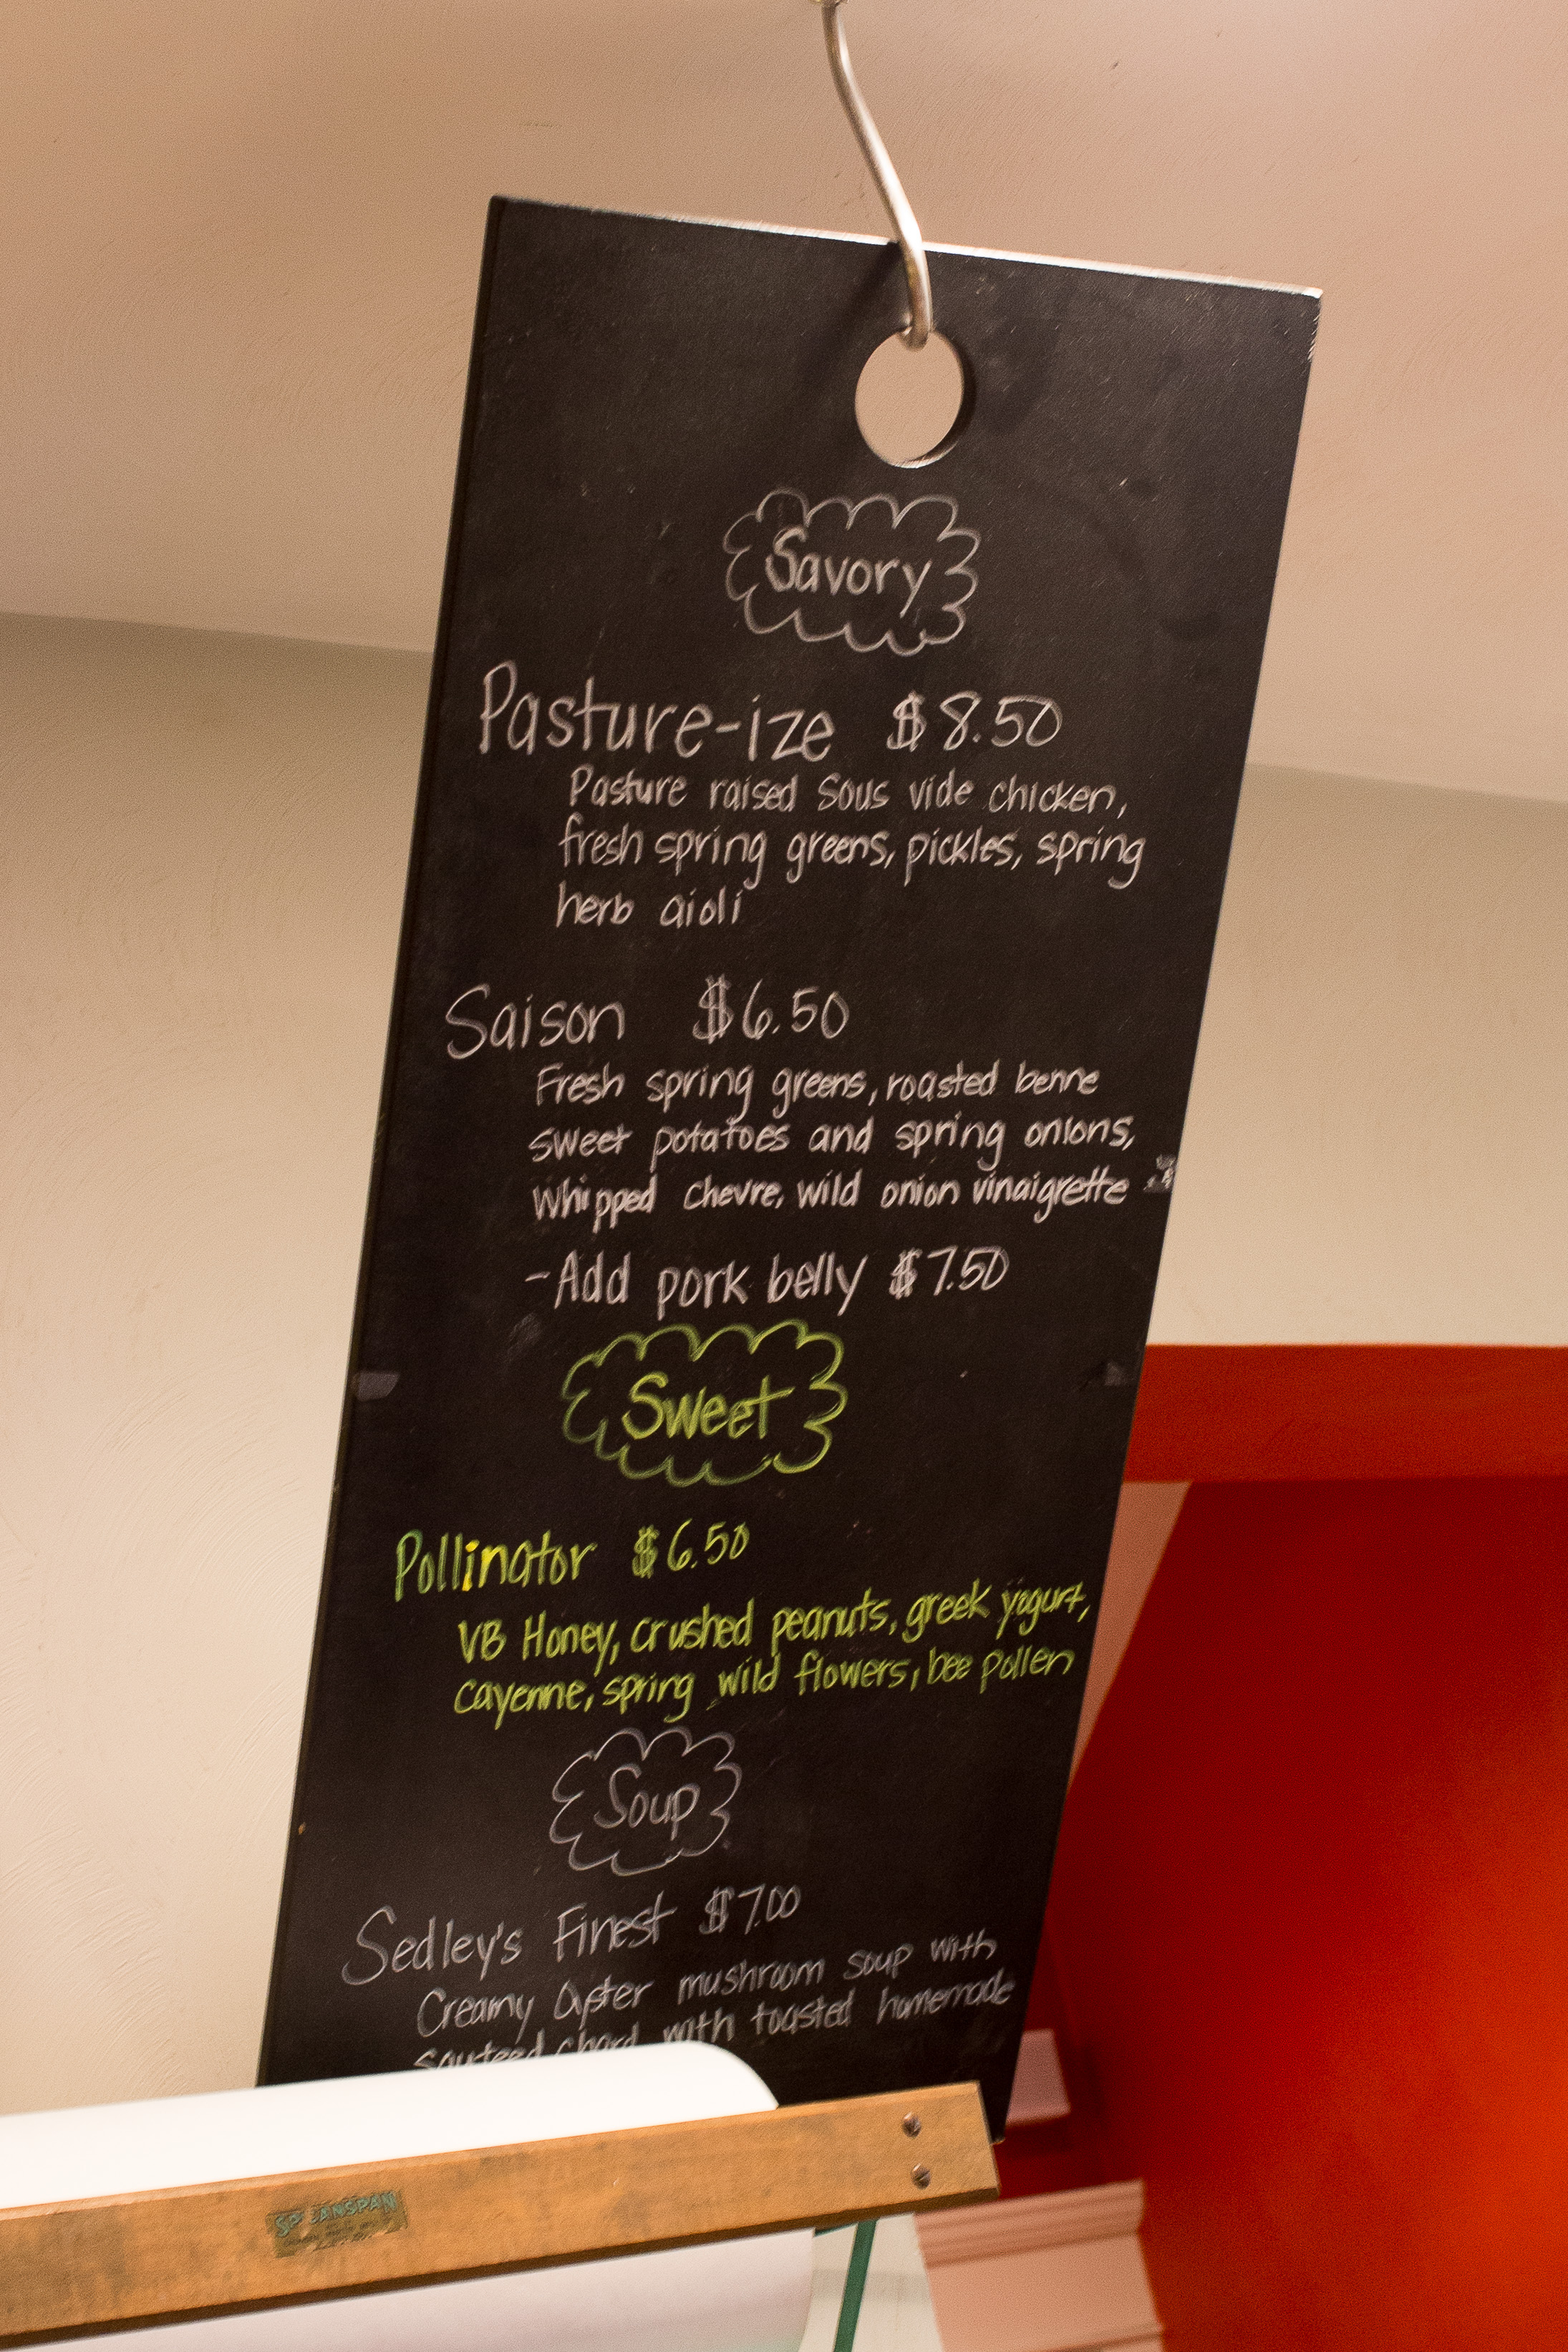 Savory
Pasture-ize $8.50
Pasture raised Sous vide chicken,
fresh spring greens, pickles, spring
herb aioli
Saison $6.50
Fresh spring greens, roasted benne
sweet potatoes and spring onions,
whipped chevre, wild onion vinaigrette
-Add pork belly $7.50
Sweet
Pollinator $6.50
VB Honey, crushed peanuts, greek yogurt,
cayenne, spring wild flowers, bee pollen
Soup
Sedley's Finest $7.00
Creamy Oyster mushroom soup with
sauteed chard with toasted homemade